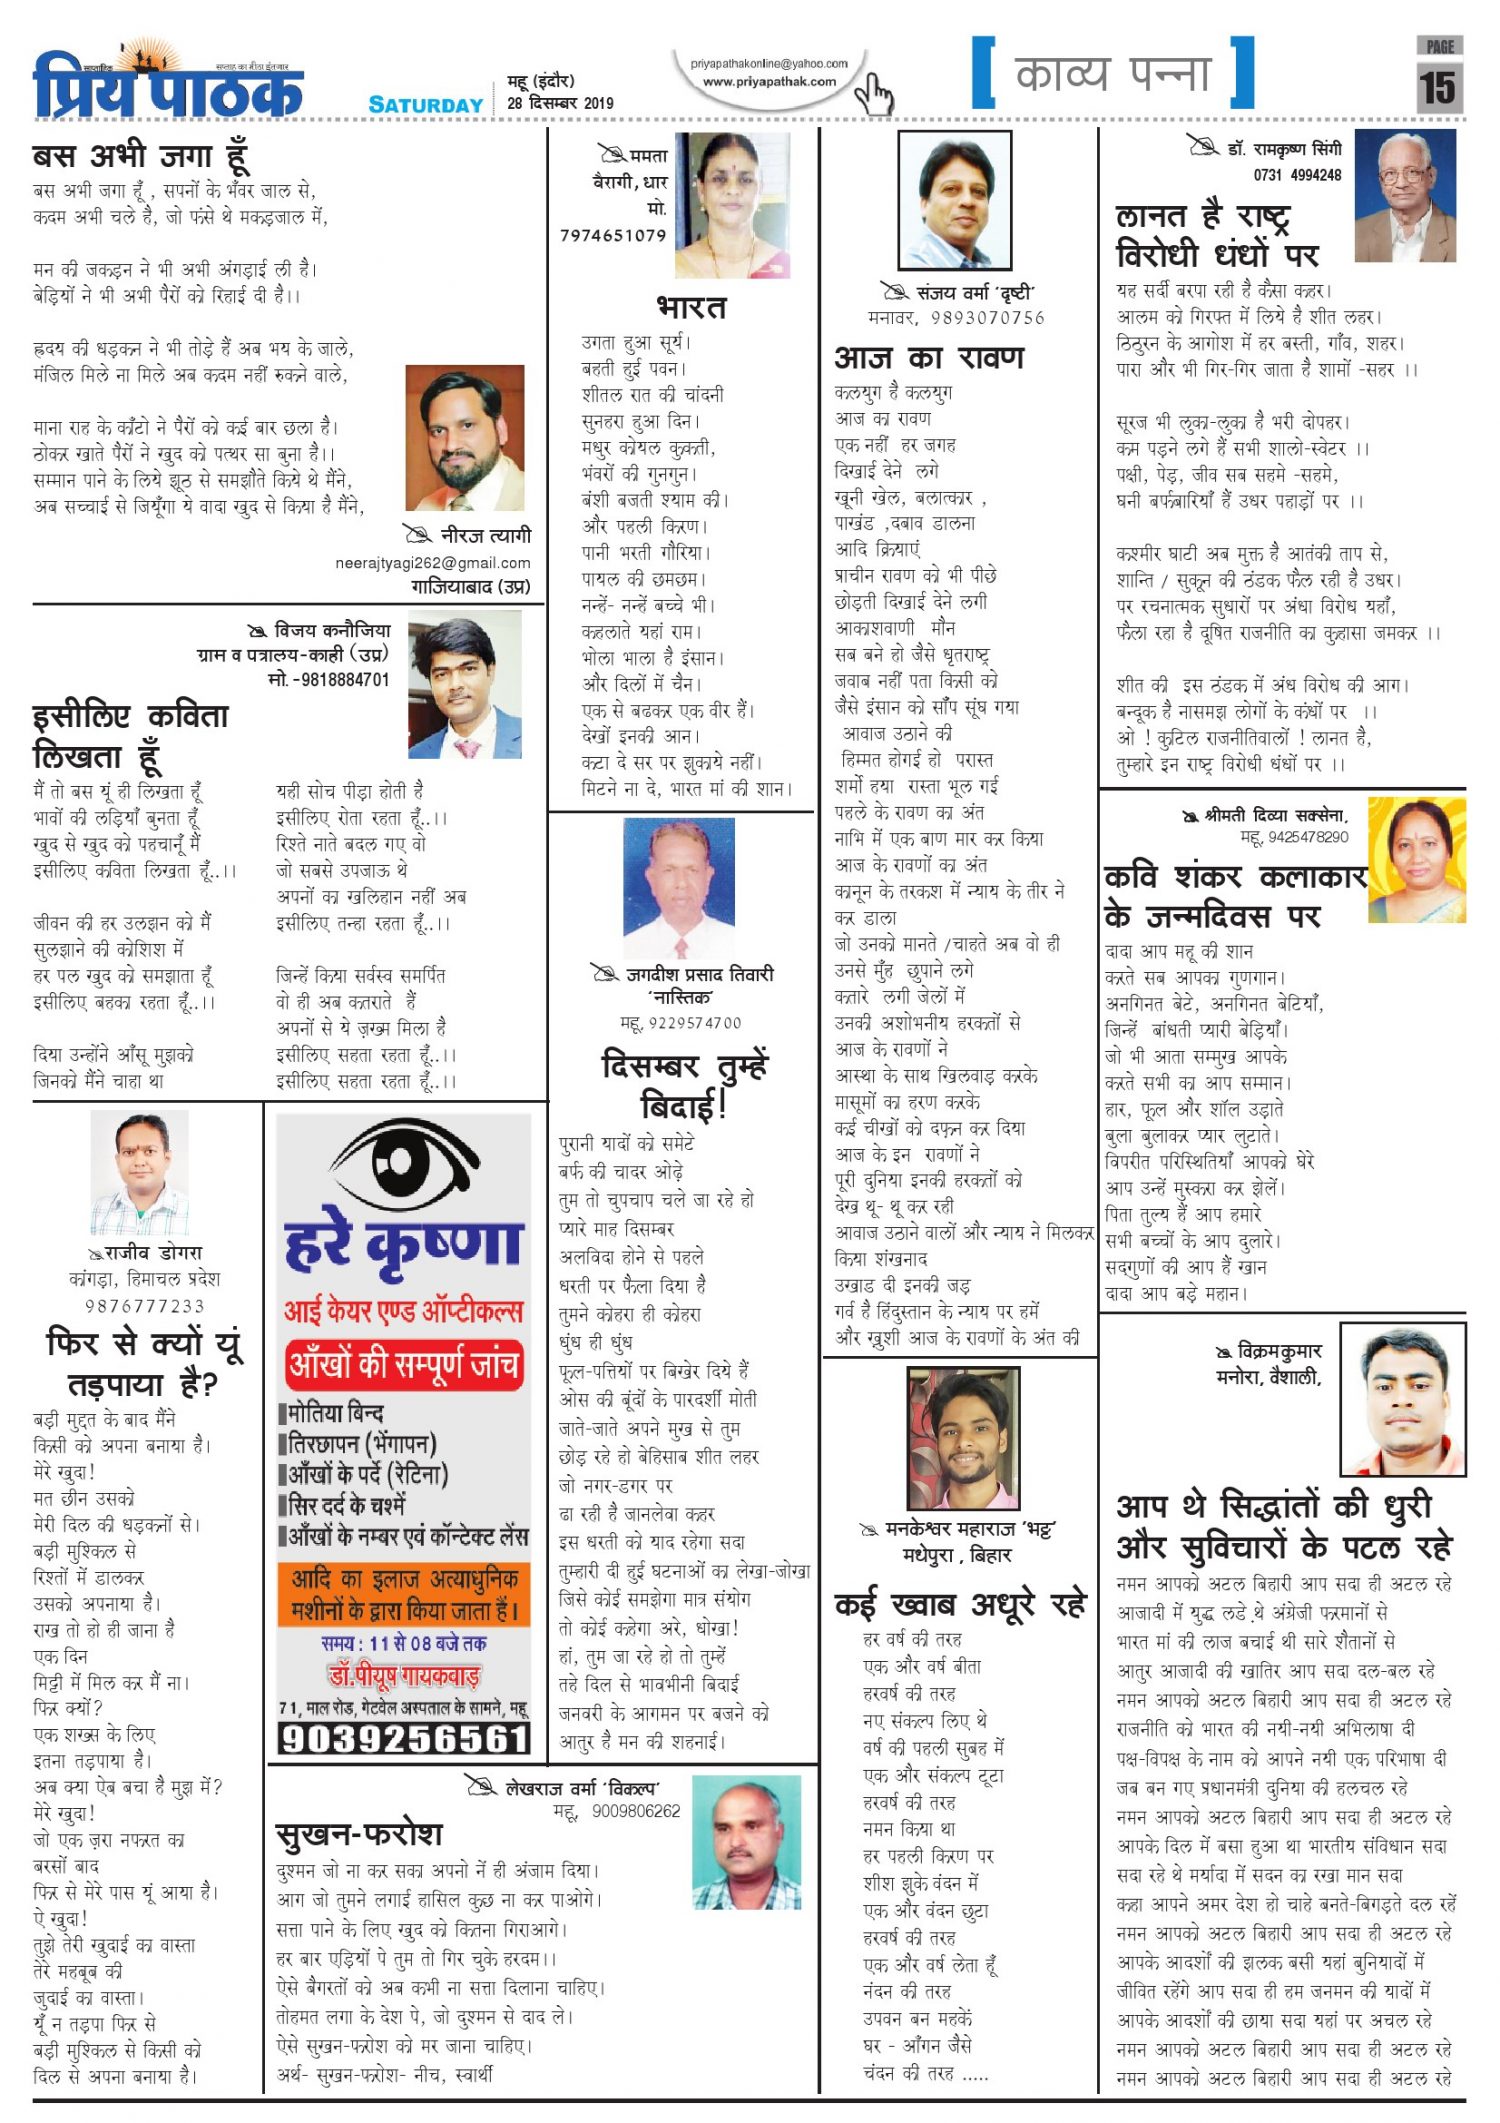 साप्ताहिक
सप्ताह का मीठा इंतजार
प्रिय पाठक
SATURDAY
महू (इंदौर)
28 दिसम्बर 2019
priyapathakonline@yahoo.com
www.priyapathak.com
[ काव्य पन्ना ]
PAGE
15
बस अभी जगा हूँ
बस अभी जगा हूँ , सपनों के भँवर जाल से,
कदम अभी चले है, जो फंसे थे मकड़जाल में,
मन की जकड़न ने भी अभी अंगड़ाई ली है।
बेड़ियों ने भी अभी पैरों को रिहाई दी है।।
ह्रदय की धड़कन ने भी तोड़े हैं अब भय के जाले,
मंजिल मिले ना मिले अब कदम नहीं रुकने वाले,
माना राह के काँटो ने पैरों को कई बार छला है।
ठोकर खाते पैरों ने खुद को पत्थर सा बुना है।।
सम्मान पाने के लिये झूठ से समझौते किये थे मैंने,
अब सच्चाई से जियूँगा ये वादा खुद से किया है मैंने,
नीरज त्यागी
neerajtyagi262@gmail.com
गाजियाबाद (उप्र)
विजय कनौजिया
ग्राम व पत्रालय-काही (उप्र)
मो.-9818884701
इसीलिए कविता
लिखता हूँ
मैं तो बस यूं ही लिखता हूँ
भावों की लड़ियाँ बुनता हूँ
खुद से खुद को पहचानूँ मैं
इसीलिए कविता लिखता हूँ..।।
जीवन की हर उलझन को मैं
सुलझाने की कोशिश में
हर पल खुद को समझाता हूँ
इसीलिए बहका रहता हूँ..।।
दिया उन्होंने आँसू मुझको
जिनको मैंने चाहा था
यही सोच पीड़ा होती है
इसीलिए रोता रहता हूँ..।।
रिश्ते नाते बदल गए वो
जो सबसे उपजाऊ थे
अपनों का खलिहान नहीं अब
इसीलिए तन्हा रहता हूँ..।।
जिन्हें किया सर्वस्व समर्पित
वो ही अब कतराते हैं
अपनों से ये ज़ख्म मिला है
इसीलिए सहता रहता हूँ..।।
इसीलिए सहता रहता हूँ..।।
राजीव डोगरा
कांगड़ा, हिमाचल प्रदेश
9876777233
फिर से क्यों यूं
तड़पाया है?
बड़ी मुद्दत के बाद मैंने
किसी को अपना बनाया है।
मेरे खुदा!
मत छीन उसको
मेरी दिल की धड़कनों से।
बड़ी मुश्किल से
रिश्तों में डालकर
उसको अपनाया है।
राख तो हो ही जाना है
एक दिन
मिट्टी में मिल कर मैं ना।
फिर क्यों?
एक शख्स के लिए
इतना तड़पाया है।
अब क्या ऐब बचा है मुझ में?
मेरे खुदा!
जो एक ज़रा नफरत का
बरसों बाद
फिर से मेरे पास यूं आया है।
ऐ खुदा!
तुझे तेरी खुदाई का वास्ता
तेरे महबूब की
जुदाई का वास्ता।
यूँ न तड़पा फिर से
बड़ी मुश्किल से किसी को
दिल से अपना बनाया है।
हरे कृष्णा
आई केयर एण्ड ऑप्टीकल्स
आँखों की सम्पूर्ण जांच
मोतिया बिन्द
तिरछापन (भेंगापन)
आँखों के पर्दे (रेटिना)
सिर दर्द के चश्में
आँखों के नम्बर एवं कॉन्टेक्ट लेंस
आदि का इलाज अत्याधुनिक
मशीनों के द्वारा किया जाता हैं।
समय : 11 से 08 बजे तक
डॉ.पीयूष गायकवाड़
71, माल रोड, गेटवेल अस्पताल के सामने, महू
9039256561
लेखराज वर्मा 'विकल्प'
महू, 9009806262
सुखन-फरोश
दुश्मन जो ना कर सका अपनो नें ही अंजाम दिया।
आग जो तुमने लगाई हासिल कुछ ना कर पाओगे।
सत्ता पाने के लिए खुद को कितना गिराआगे।
हर बार एड़ियों पे तुम तो गिर चुके हरदम।।
ऐसे बैगरतों को अब कभी ना सत्ता दिलाना चाहिए।
तोहमत लगा के देश पे, जो दुश्मन से दाद ले।
ऐसे सुखन-फरोश को मर जाना चाहिए।
अर्थ- सुखन-फरोश- नीच, स्वार्थी
ममता
वैरागी, धार
मो.
7974651079
भारत
उगता हुआ सूर्य।
बहती हुई पवन।
शीतल रात की चांदनी
सुनहरा हुआ दिन।
मधुर कोयल कुकती,
भंवरों की गुनगुन।
बंशी बजती श्याम की।
और पहली किरण।
पानी भरती गौरिया।
पायल की छमछम।
नन्हें- नन्हें बच्चे भी।
कहलाते यहां राम।
भोला भाला है इंसान।
और दिलों में चैन।
एक से बढकर एक वीर हैं।
देखों इनकी आन।
कटा दे सर पर झुकाये नहीं।
मिटने ना दे, भारत मां की शान।
जगदीश प्रसाद तिवारी
'नास्तिक'
महू, 9229574700
दिसम्बर तुम्हें
बिदाई!
पुरानी यादों को समेटे
बर्फ की चादर ओढ़े
तुम तो चुपचाप चले जा रहे हो
प्यारे माह दिसम्बर
अलविदा होने से पहले
धरती पर फैला दिया है
तुमने कोहरा ही कोहरा
धुंध ही धुंध
फूल-पत्तियों पर बिखेर दिये हैं
ओस की बूंदों के पारदर्शी मोती
जाते-जाते अपने मुख से तुम
छोड़ रहे हो बेहिसाब शीत लहर
जो नगर-डगर पर
ढा रही है जानलेवा कहर
इस धरती को याद रहेगा सदा
तुम्हारी दी हुई घटनाओं का लेखा-जोखा
जिसे कोई समझेगा मात्र संयोग
तो कोई कहेगा अरे, धोखा!
हां, तुम जा रहे हो तो तुम्हें
तहे दिल से भावभीनी बिदाई
जनवरी के आगमन पर बजने को
आतुर है मन की शहनाई।
संजय वर्मा 'दृष्टी'
मनावर, 9893070756
आज का रावण
कलयुग है कलयुग
आज का रावण
एक नहीं हर जगह
दिखाई देने लगे
खूनी खेल, बलात्कार ,
पाखंड ,दबाव डालना
आदि क्रियाएं
प्राचीन रावण को भी पीछे
छोड़ती दिखाई देने लगी
आकाशवाणी मौन
सब बने हो जैसे धृतराष्ट्र
जवाब नहीं पता किसी को
जैसे इंसान को साँप सूंघ गया
आवाज उठाने की
हिम्मत होगई हो परास्त
शर्मो हया रास्ता भूल गई
पहले के रावण का अंत
नाभि में एक बाण मार कर किया
आज के रावणों का अंत
कानून के तरकश में न्याय के तीर ने
कर डाला
जो उनको मानते /चाहते अब वो ही
उनसे मुँह छुपाने लगे
कतारे लगी जेलों में
उनकी अशोभनीय हरकतों से
आज के रावणों ने
आस्था के साथ खिलवाड़ करके
मासूमों का हरण करके
कई चीखों को दफ़्न कर दिया
आज के इन रावणों ने
पूरी दुनिया इनकी हरकतों को
देख थू- थू कर रही
आवाज उठाने वालों और न्याय ने मिलकर
किया शंखनाद
उखाड दी इनकी जड़
गर्व है हिंदुस्तान के न्याय पर हमें
और ख़ुशी आज के रावणों के अंत की
मनकेश्वर महाराज 'भट्ट'
मधेपुरा , बिहार
कई ख्वाब अधूरे रहे
हर वर्ष की तरह
एक और वर्ष बीता
हरवर्ष की तरह
नए संकल्प लिए थे
वर्ष की पहली सुबह में
एक और संकल्प टूटा
हरवर्ष की तरह
नमन किया था
हर पहली किरण पर
शीश झुके वंदन में
एक और वंदन छुटा
हरवर्ष की तरह
एक और वर्ष लेता हूँ
नंदन की तरह
उपवन बन महकें
घर - आँगन जैसे
चंदन की तरह .....
डॉ. रामकृष्ण सिंगी
0731 4994248
लानत है राष्ट्र
विरोधी धंधों पर
यह सर्दी बरपा रही है कैसा कहर।
आलम को गिरफ्त में लिये है शीत लहर।
ठिठुरन के आगोश में हर बस्ती, गाँव, शहर।
पारा और भी गिर-गिर जाता है शामों -सहर ।।
सूरज भी लुका-लुका है भरी दोपहर।
कम पड़ने लगे हैं सभी शालो-स्वेटर ।।
पक्षी, पेड़, जीव सब सहमे -सहमे,
घनी बर्फबारियाँ हैं उधर पहाड़ों पर ।।
कश्मीर घाटी अब मुक्त है आतंकी ताप से,
शान्ति / सुकून की ठंडक फैल रही है उधर।
पर रचनात्मक सुधारों पर अंधा विरोध यहाँ,
फैला रहा है दूषित राजनीति का कुहासा जमकर ।।
शीत की इस ठंडक में अंध विरोध की आग।
बन्दूक है नासमझ लोगों के कंधों पर ।।
ओ ! कुटिल राजनीतिवालों ! लानत है,
तुम्हारे इन राष्ट्र विरोधी धंधों पर ।।
श्रीमती दिव्या सक्सेना,
महू, 9425478290
कवि शंकर कलाकार
के जन्मदिवस पर
दादा आप महू की शान
करते सब आपका गुणगान।
अनगिनत बेटे, अनगिनत बेटियाँ,
जिन्हें बांधती प्यारी बेड़ियाँ।
जो भी आता सम्मुख आपके
करते सभी का आप सम्मान।
हार, फूल और शॉल उड़ाते
बुला बुलाकर प्यार लुटाते।
विपरीत परिस्थितियाँ आपको घेरे
आप उन्हें मुस्करा कर झेलें।
पिता तुल्य हैं आप हमारे
सभी बच्चों के आप दुलारे।
सदगुणों की आप हैं खान
दादा आप बड़े महान।
विक्रमकुमार
मनोरा, वैशाली,
आप थे सिद्धांतों की धुरी
और सुविचारों के पटल रहे
नमन आपको अटल बिहारी आप सदा ही अटल रहे
आजादी में युद्ध लडे़ थे अंग्रेजी फरमानों से
भारत मां की लाज बचाई थी सारे शैतानों से
आतुर आजादी की खातिर आप सदा दल-बल रहे
नमन आपको अटल बिहारी आप सदा ही अटल रहे
राजनीति को भारत की नयी-नयी अभिलाषा दी
पक्ष-विपक्ष के नाम को आपने नयी एक परिभाषा दी
जब बन गए प्रधानमंत्री दुनिया की हलचल रहे
नमन आपको अटल बिहारी आप सदा ही अटल रहे
आपके दिल में बसा हुआ था भारतीय संविधान सदा
सदा रहे थे मर्यादा में सदन का रखा मान सदा
कहा आपने अमर देश हो चाहे बनते-बिगड़ते दल रहें
नमन आपको अटल बिहारी आप सदा ही अटल रहे
आपके आदर्शों की झलक बसी यहां बुनियादों में
जीवित रहेंगे आप सदा ही हम जनमन की यादों में
आपके आदर्शों की छाया सदा यहां पर अचल रहे
नमन आपको अटल बिहारी आप सदा ही अटल रहे
नमन आपको अटल बिहारी आप सदा ही अटल रहे